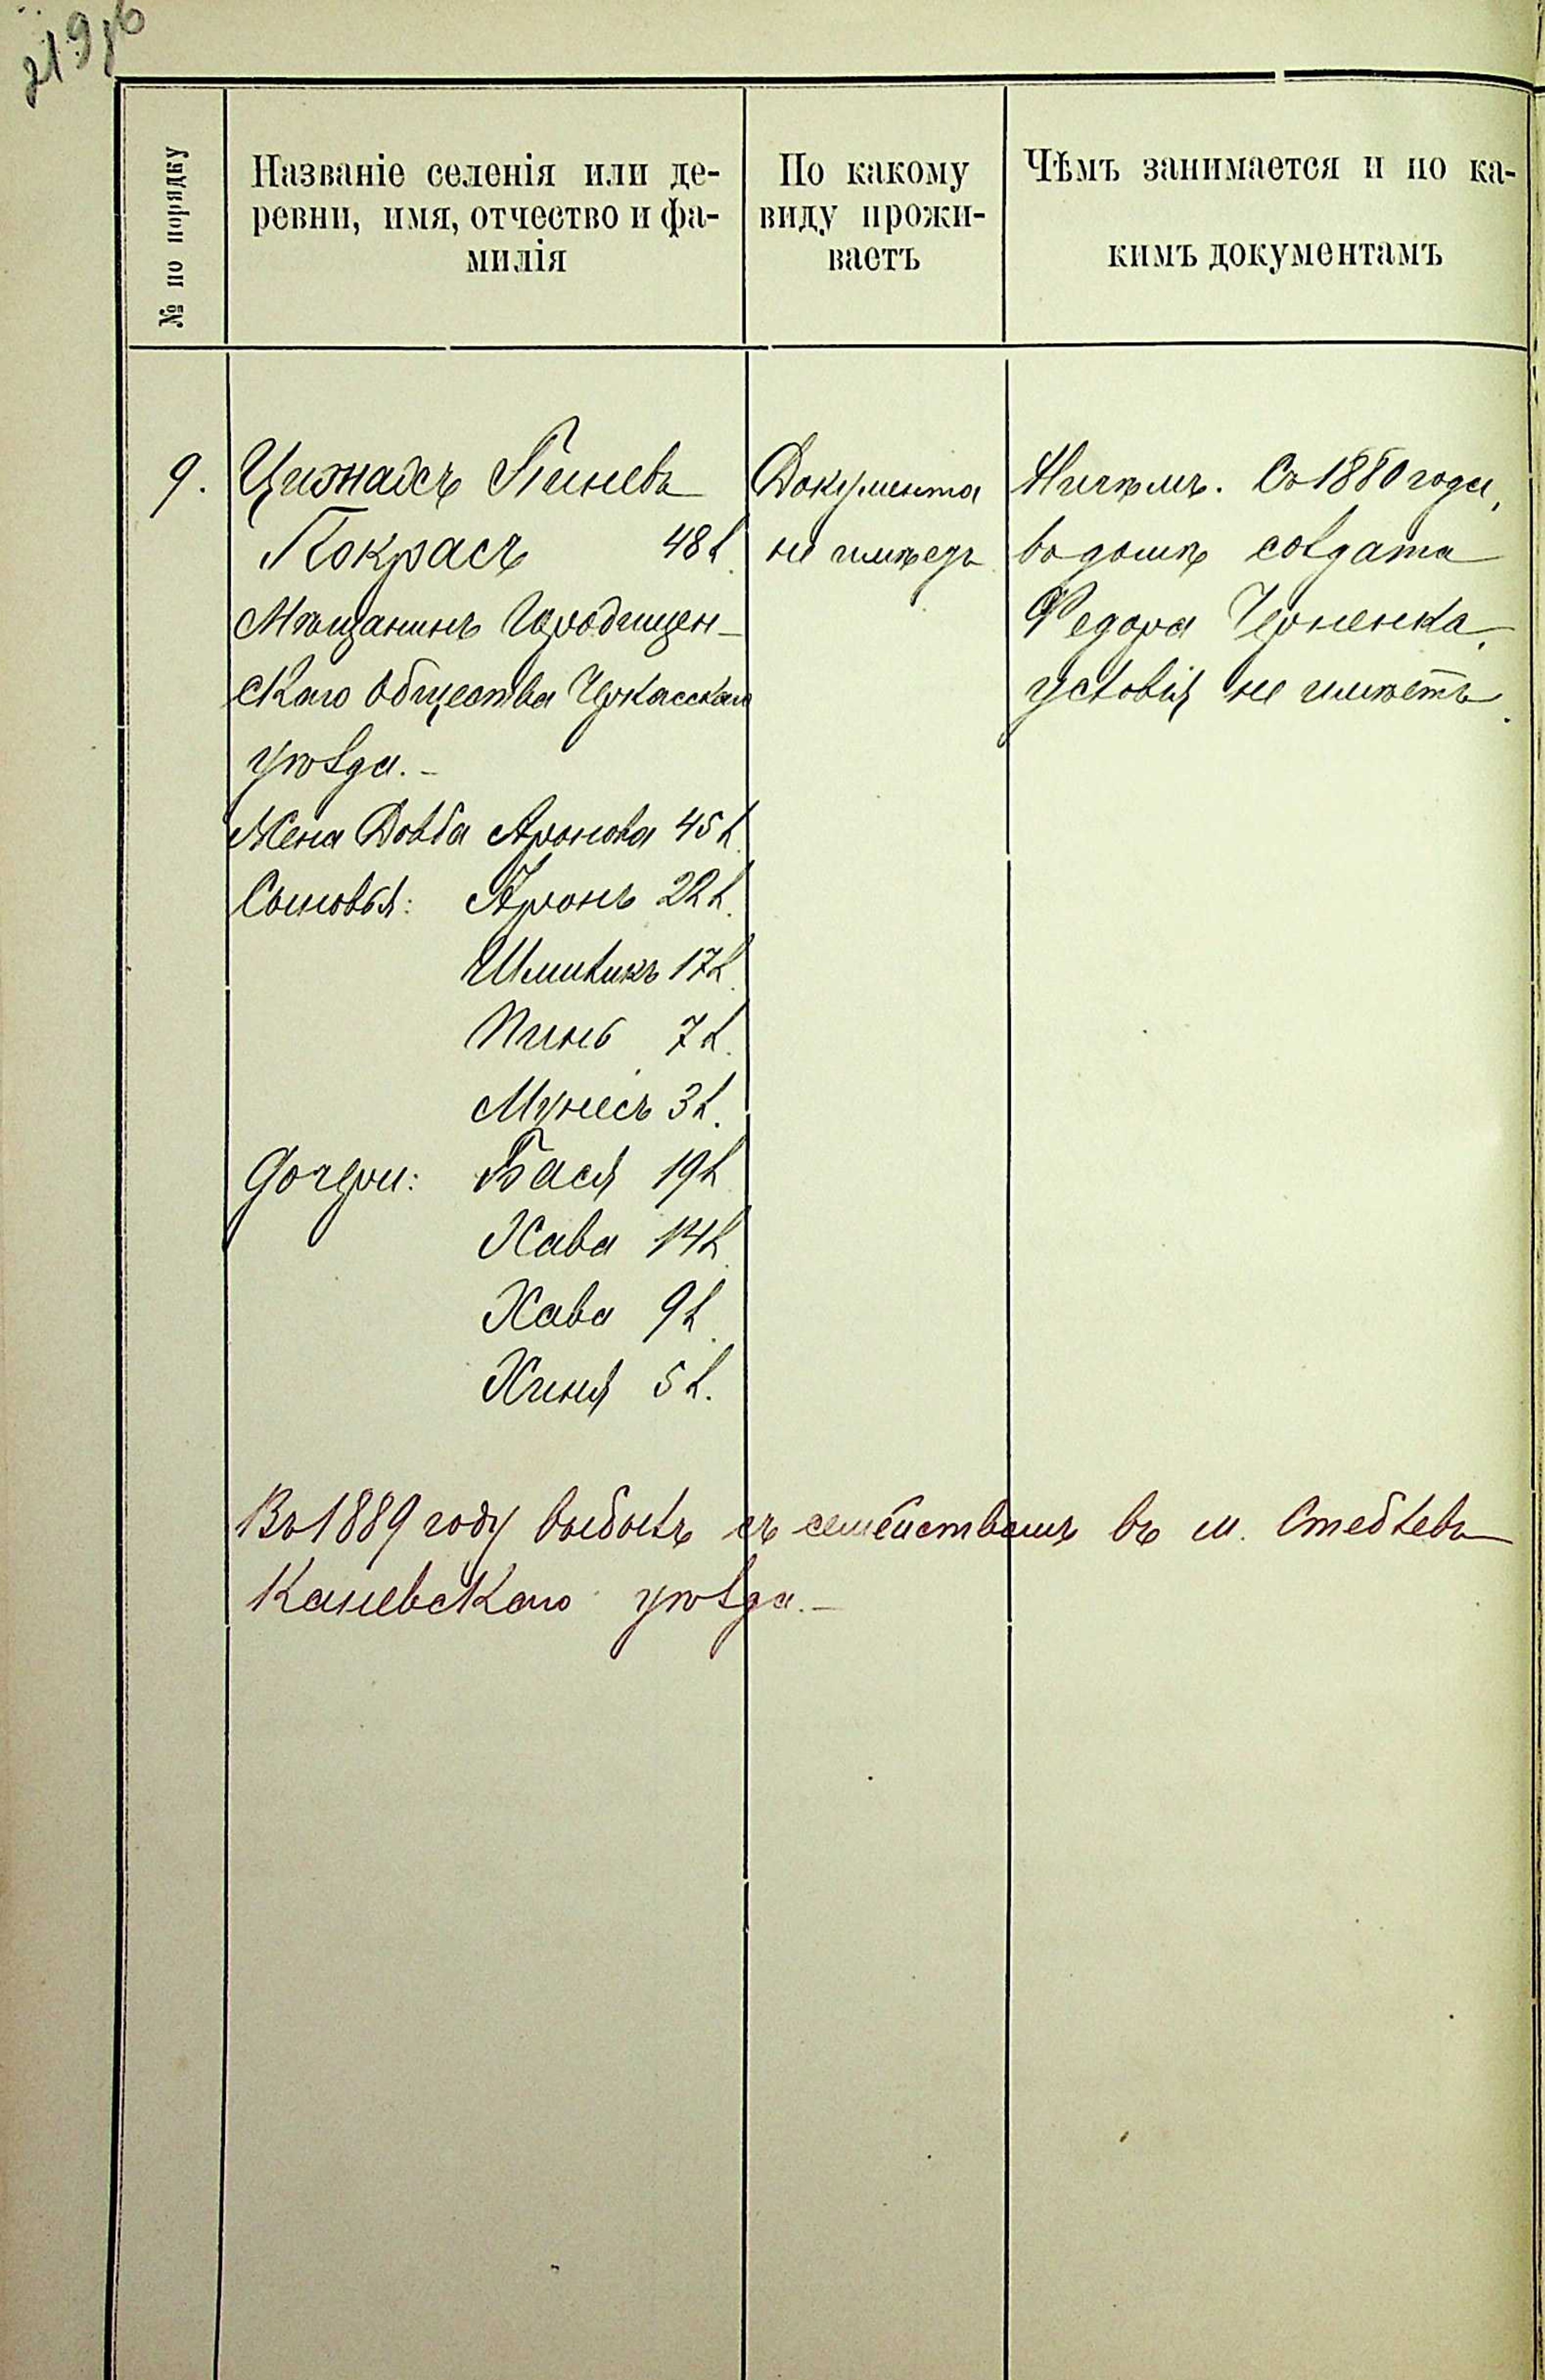 219 об
№ по порядку
Названіе селенія или де-
ревни, имя, отчество и фа-
милія
По какому
виду прожи-
ваетъ
Чѣмъ занимается и по ка-
кимъ документамъ
9.
Пиневъ
Покрасъ 48 л.
Мѣщанинъ Городищен-
скаго Общества Черкасскаго
уѣзда. –
Жена Довба Аронова 45 л.
Сыновья: Аронъ 22 л.
Шмиликъ 17 л.
Пинь 7 л.
Мунесъ 3 л.
Дочери: Бася 19 л.
Хава 14 л.
Хава 9 л.
Хиня 5 л.
Документа
не имѣетъ
Ничѣмъ. Съ 1880 года,
въ домѣ солдата
Федора Черненка,
условія не имѣетъ.
Въ 1889 году выбылъ съ семействомъ въ м. Стеблевъ
Каневскаго уѣзда. –